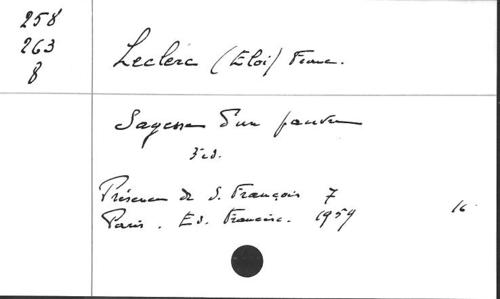 258
263
8
Leclerc (Eloi) Franc.
Sagesse d'un pauvre
3 éd.
Présence de S. François 7
Paris. Ed. Francisc. 1959 16